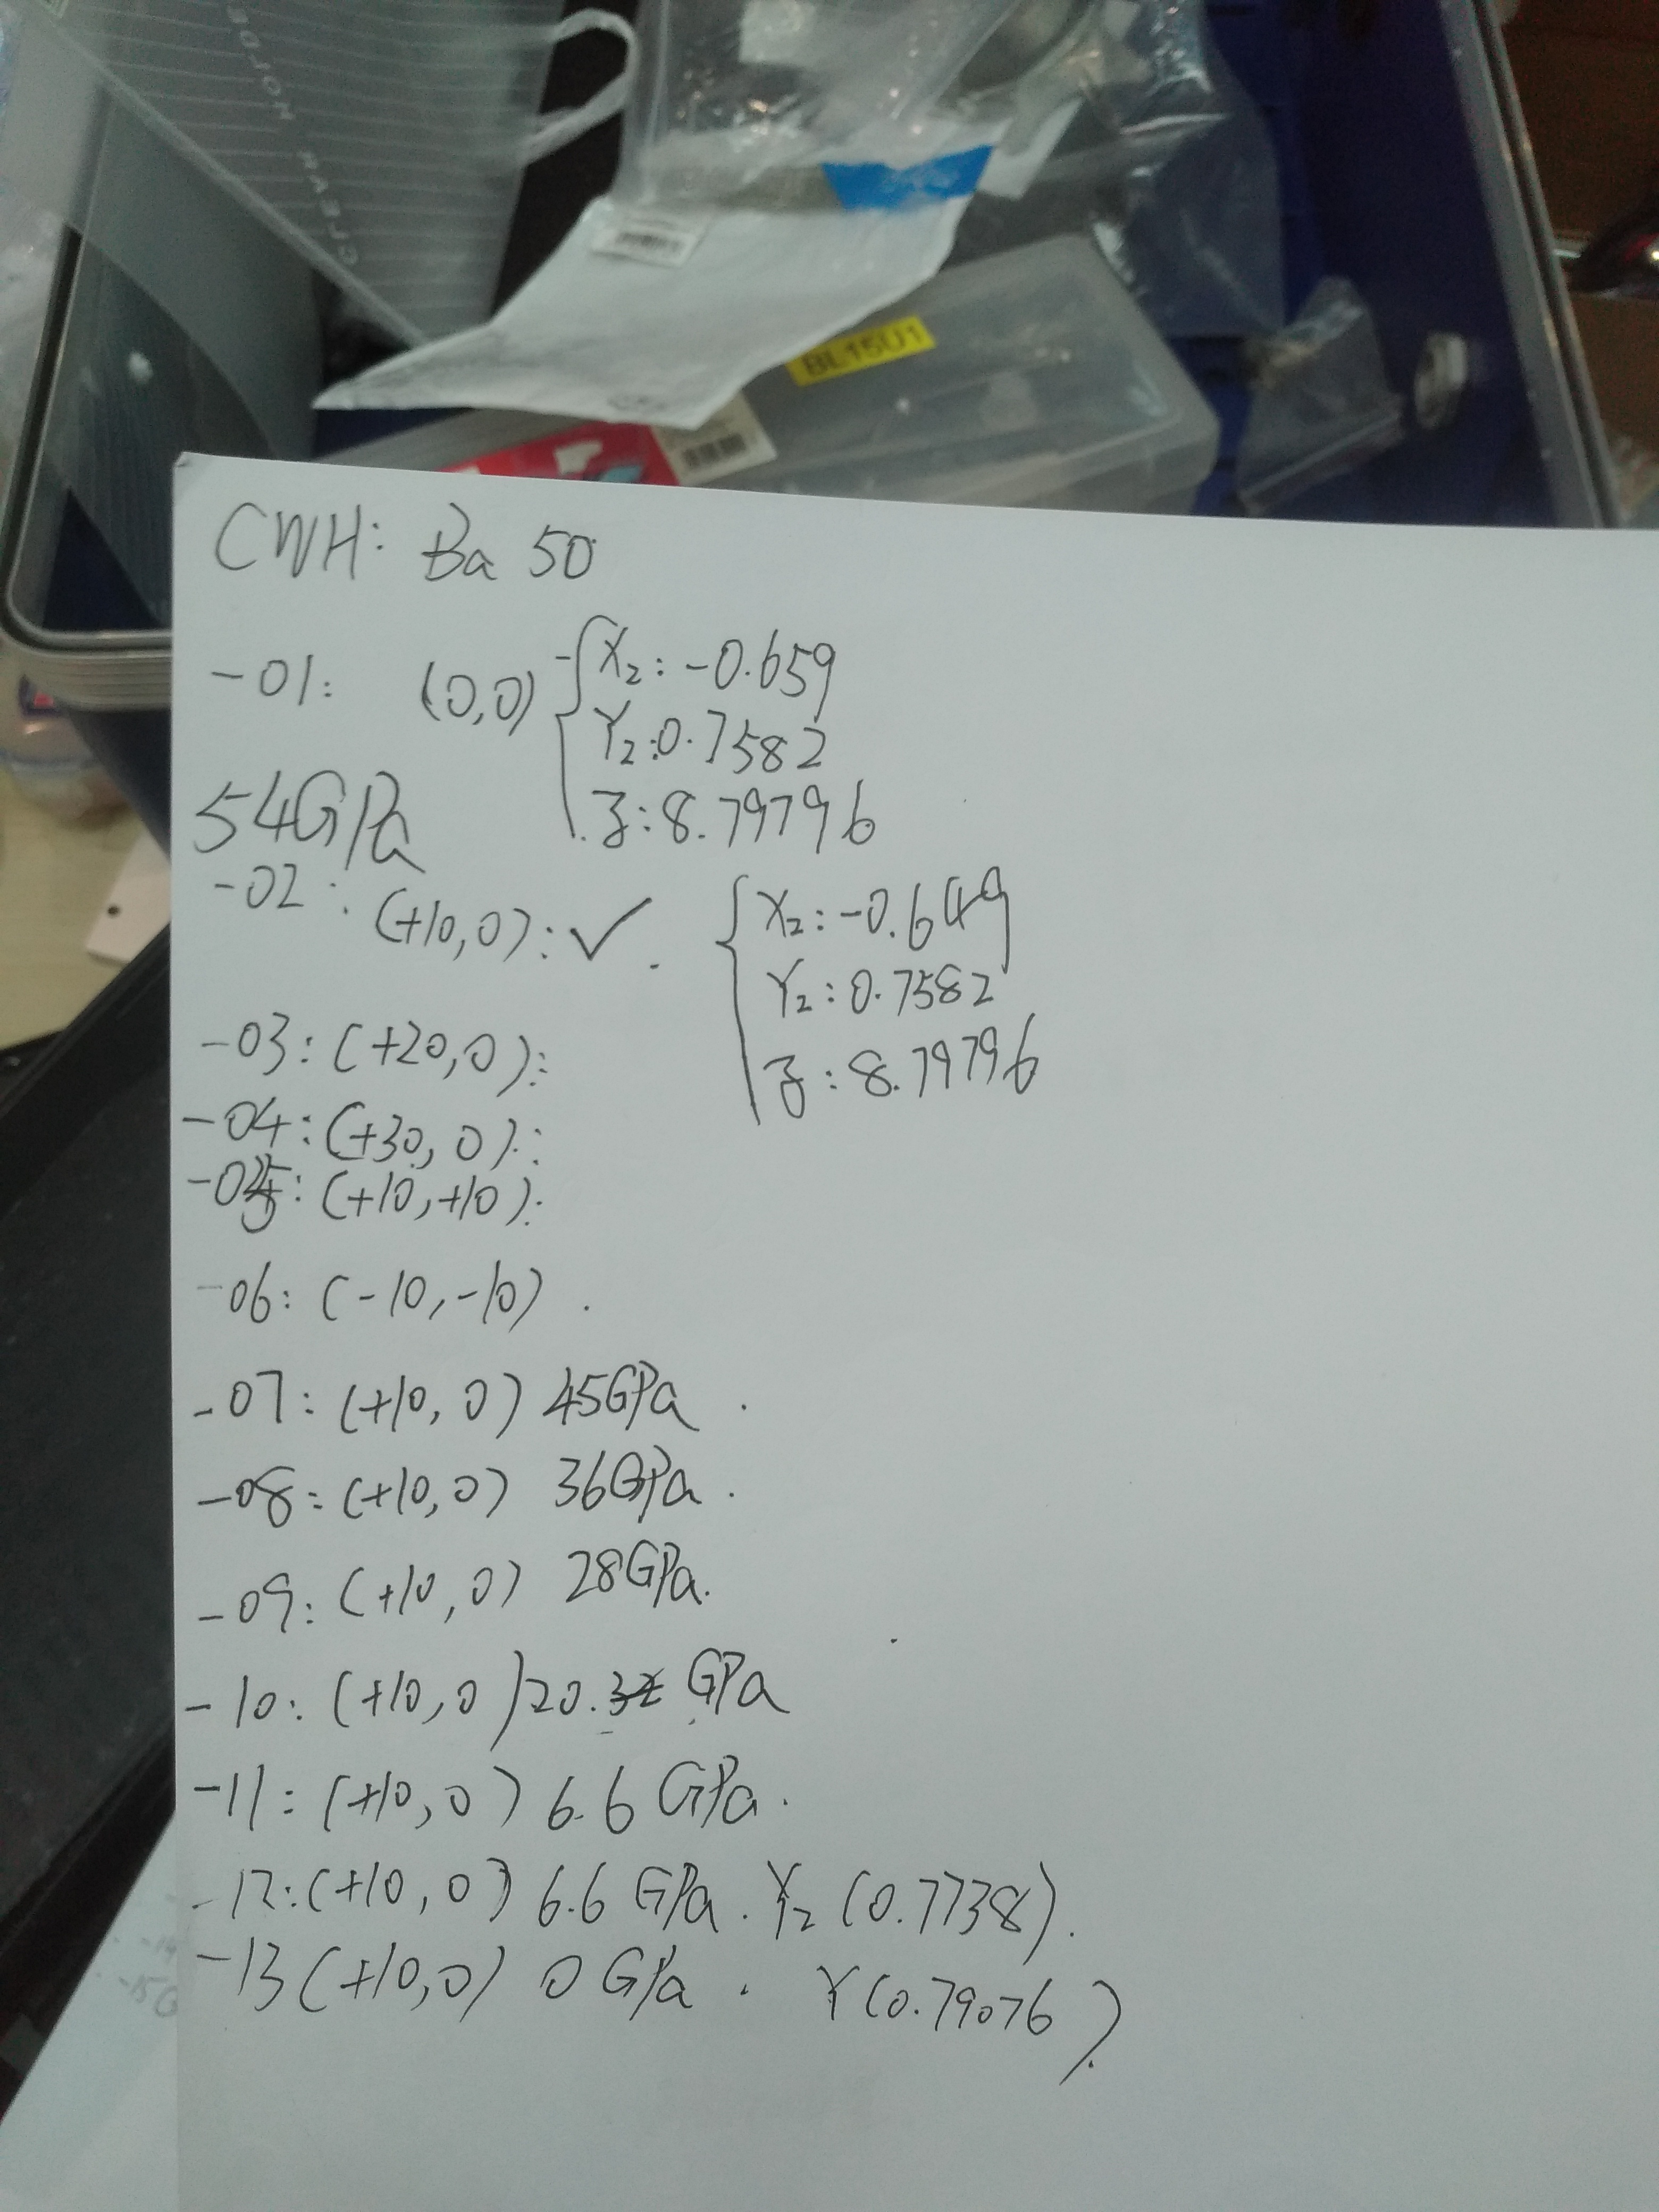 CLEAN MODE
BL15U1
CWH: Ba 50
-01: (0,0) X₂: -0.659
Y₂: 0.7582
Z: 8.79796
54GPa
-02: (+10,0): ✓. X₂: -0.649
Y₂: 0.7582
Z: 8.79796
-03: (+20,0):
-04: (+30,0):
-05: (+10,+10):
-06: (-10,-10).
-07: (+10,0) 45GPa.
-08: (+10,0) 36GPa.
-09: (+10,0) 28GPa.
-10: (+10,0) 20.3 GPa
-11: (+10,0) 6.6 GPa.
-12: (+10,0) 6.6 GPa. Y₂ (0.7738).
-13 (+10,0) 0 GPa. Y (0.79076).